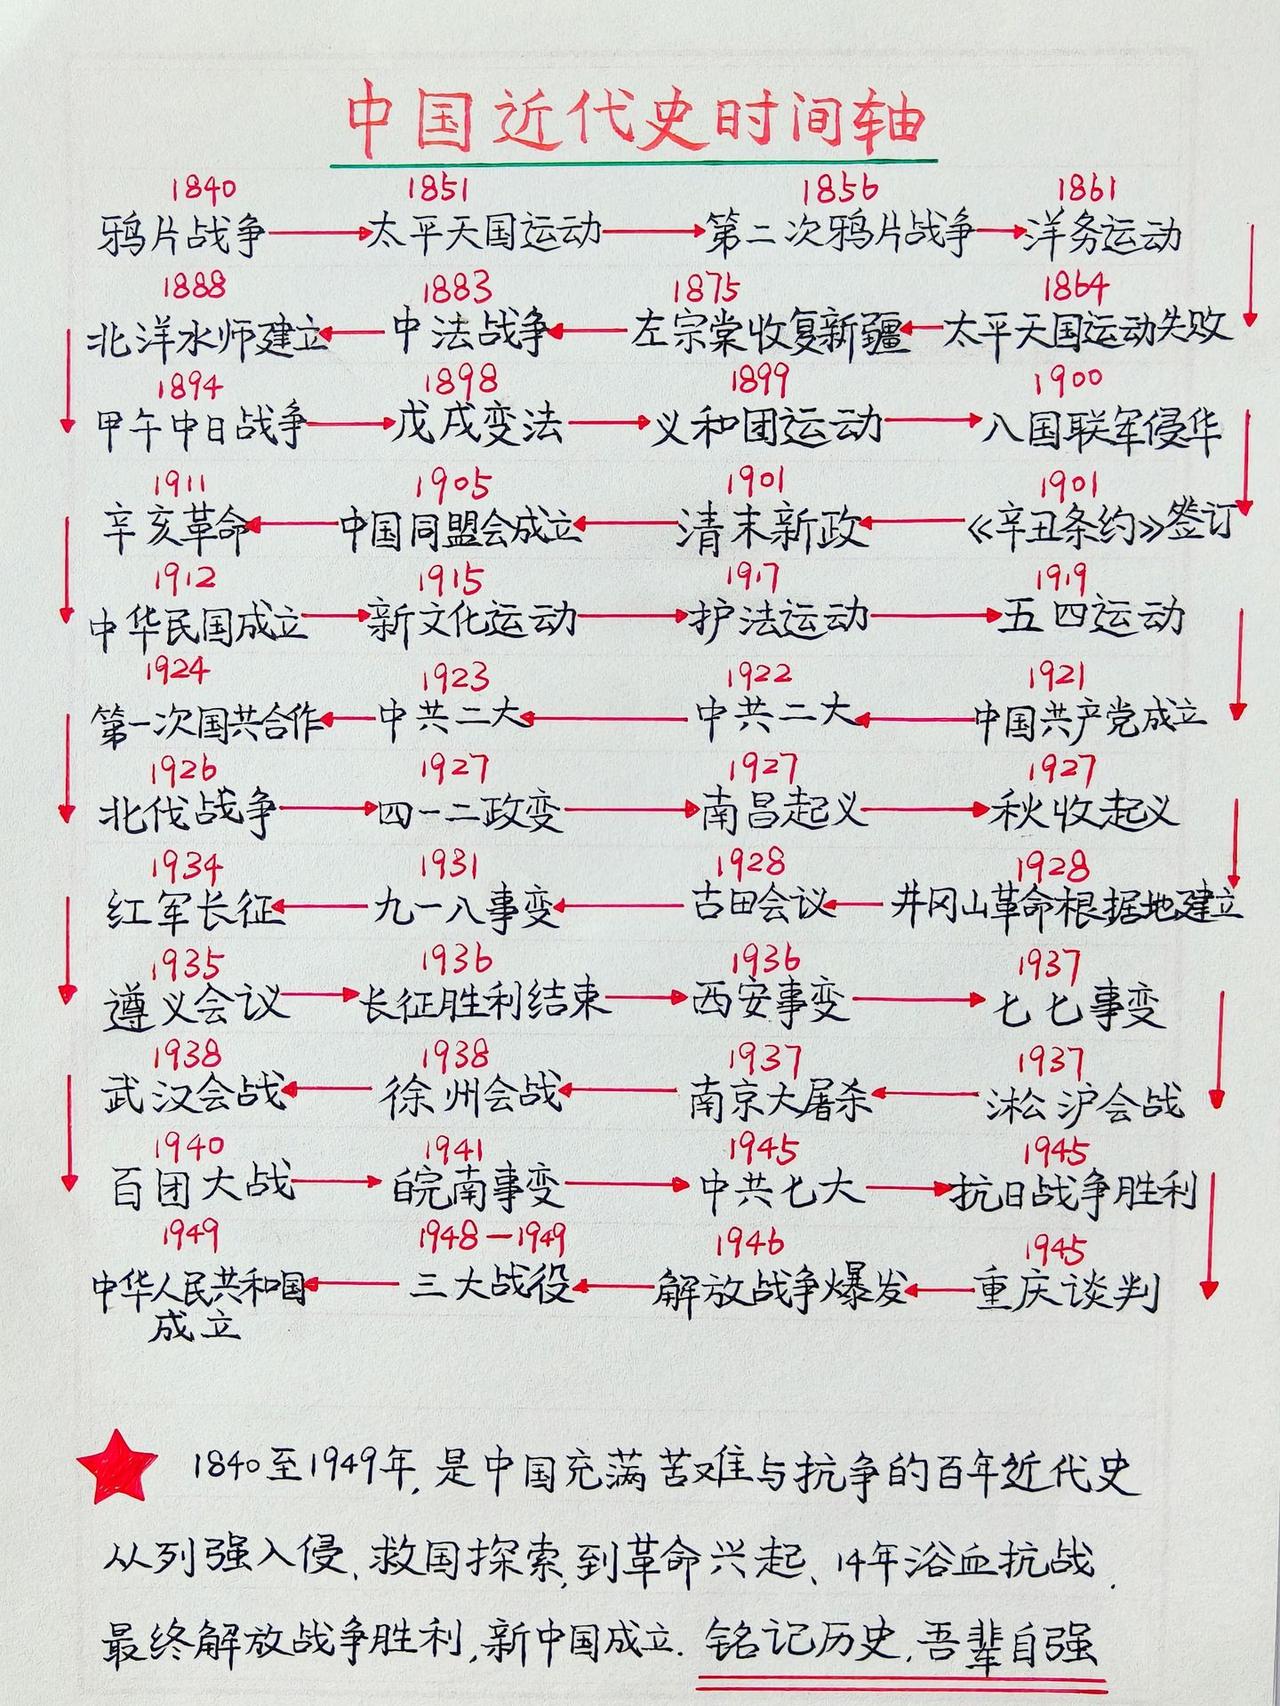 中国近代史时间轴
1840 1851 1856 1861
鸦片战争 太平天国运动 第二次鸦片战争 洋务运动
1888 1883 1875 1864
北洋水师建立 中法战争 左宗棠收复新疆 太平天国运动失败
1894 1898 1899 1900
甲午中日战争 戊戌变法 义和团运动 八国联军侵华
1911 1905 1901 1901
辛亥革命 中国同盟会成立 清末新政 《辛丑条约》签订
1912 1915 1917 1919
中华民国成立 新文化运动 护法运动 五四运动
1924 1923 1922 1921
第一次国共合作 中共二大 中共二大 中国共产党成立
1926 1927 1927 1927
北伐战争 四一二政变 南昌起义 秋收起义
1934 1931 1928 1928
红军长征 九一八事变 古田会议 井冈山革命根据地建立
1935 1936 1936 1937
遵义会议 长征胜利结束 西安事变 七七事变
1938 1938 1937 1937
武汉会战 徐州会战 南京大屠杀 淞沪会战
1940 1941 1945 1945
百团大战 皖南事变 中共七大 抗日战争胜利
1949 1948－1949 1946 1945
中华人民共和国 三大战役 解放战争爆发 重庆谈判
成立
1840至1949年,是中国充满苦难与抗争的百年近代史
从列强入侵、救国探索,到革命兴起、14年浴血抗战,
最终解放战争胜利,新中国成立. 铭记历史,吾辈自强